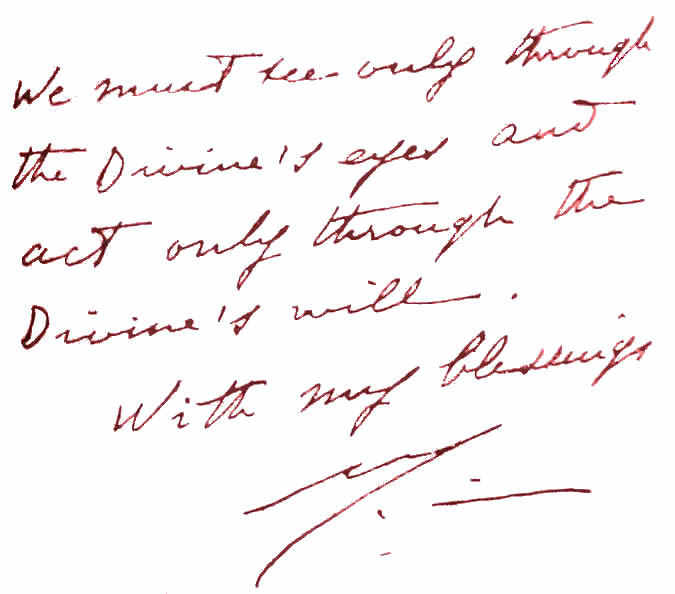 We must see only through
the Divine's eyes and
act only through the
Divine's will.
With my blessings